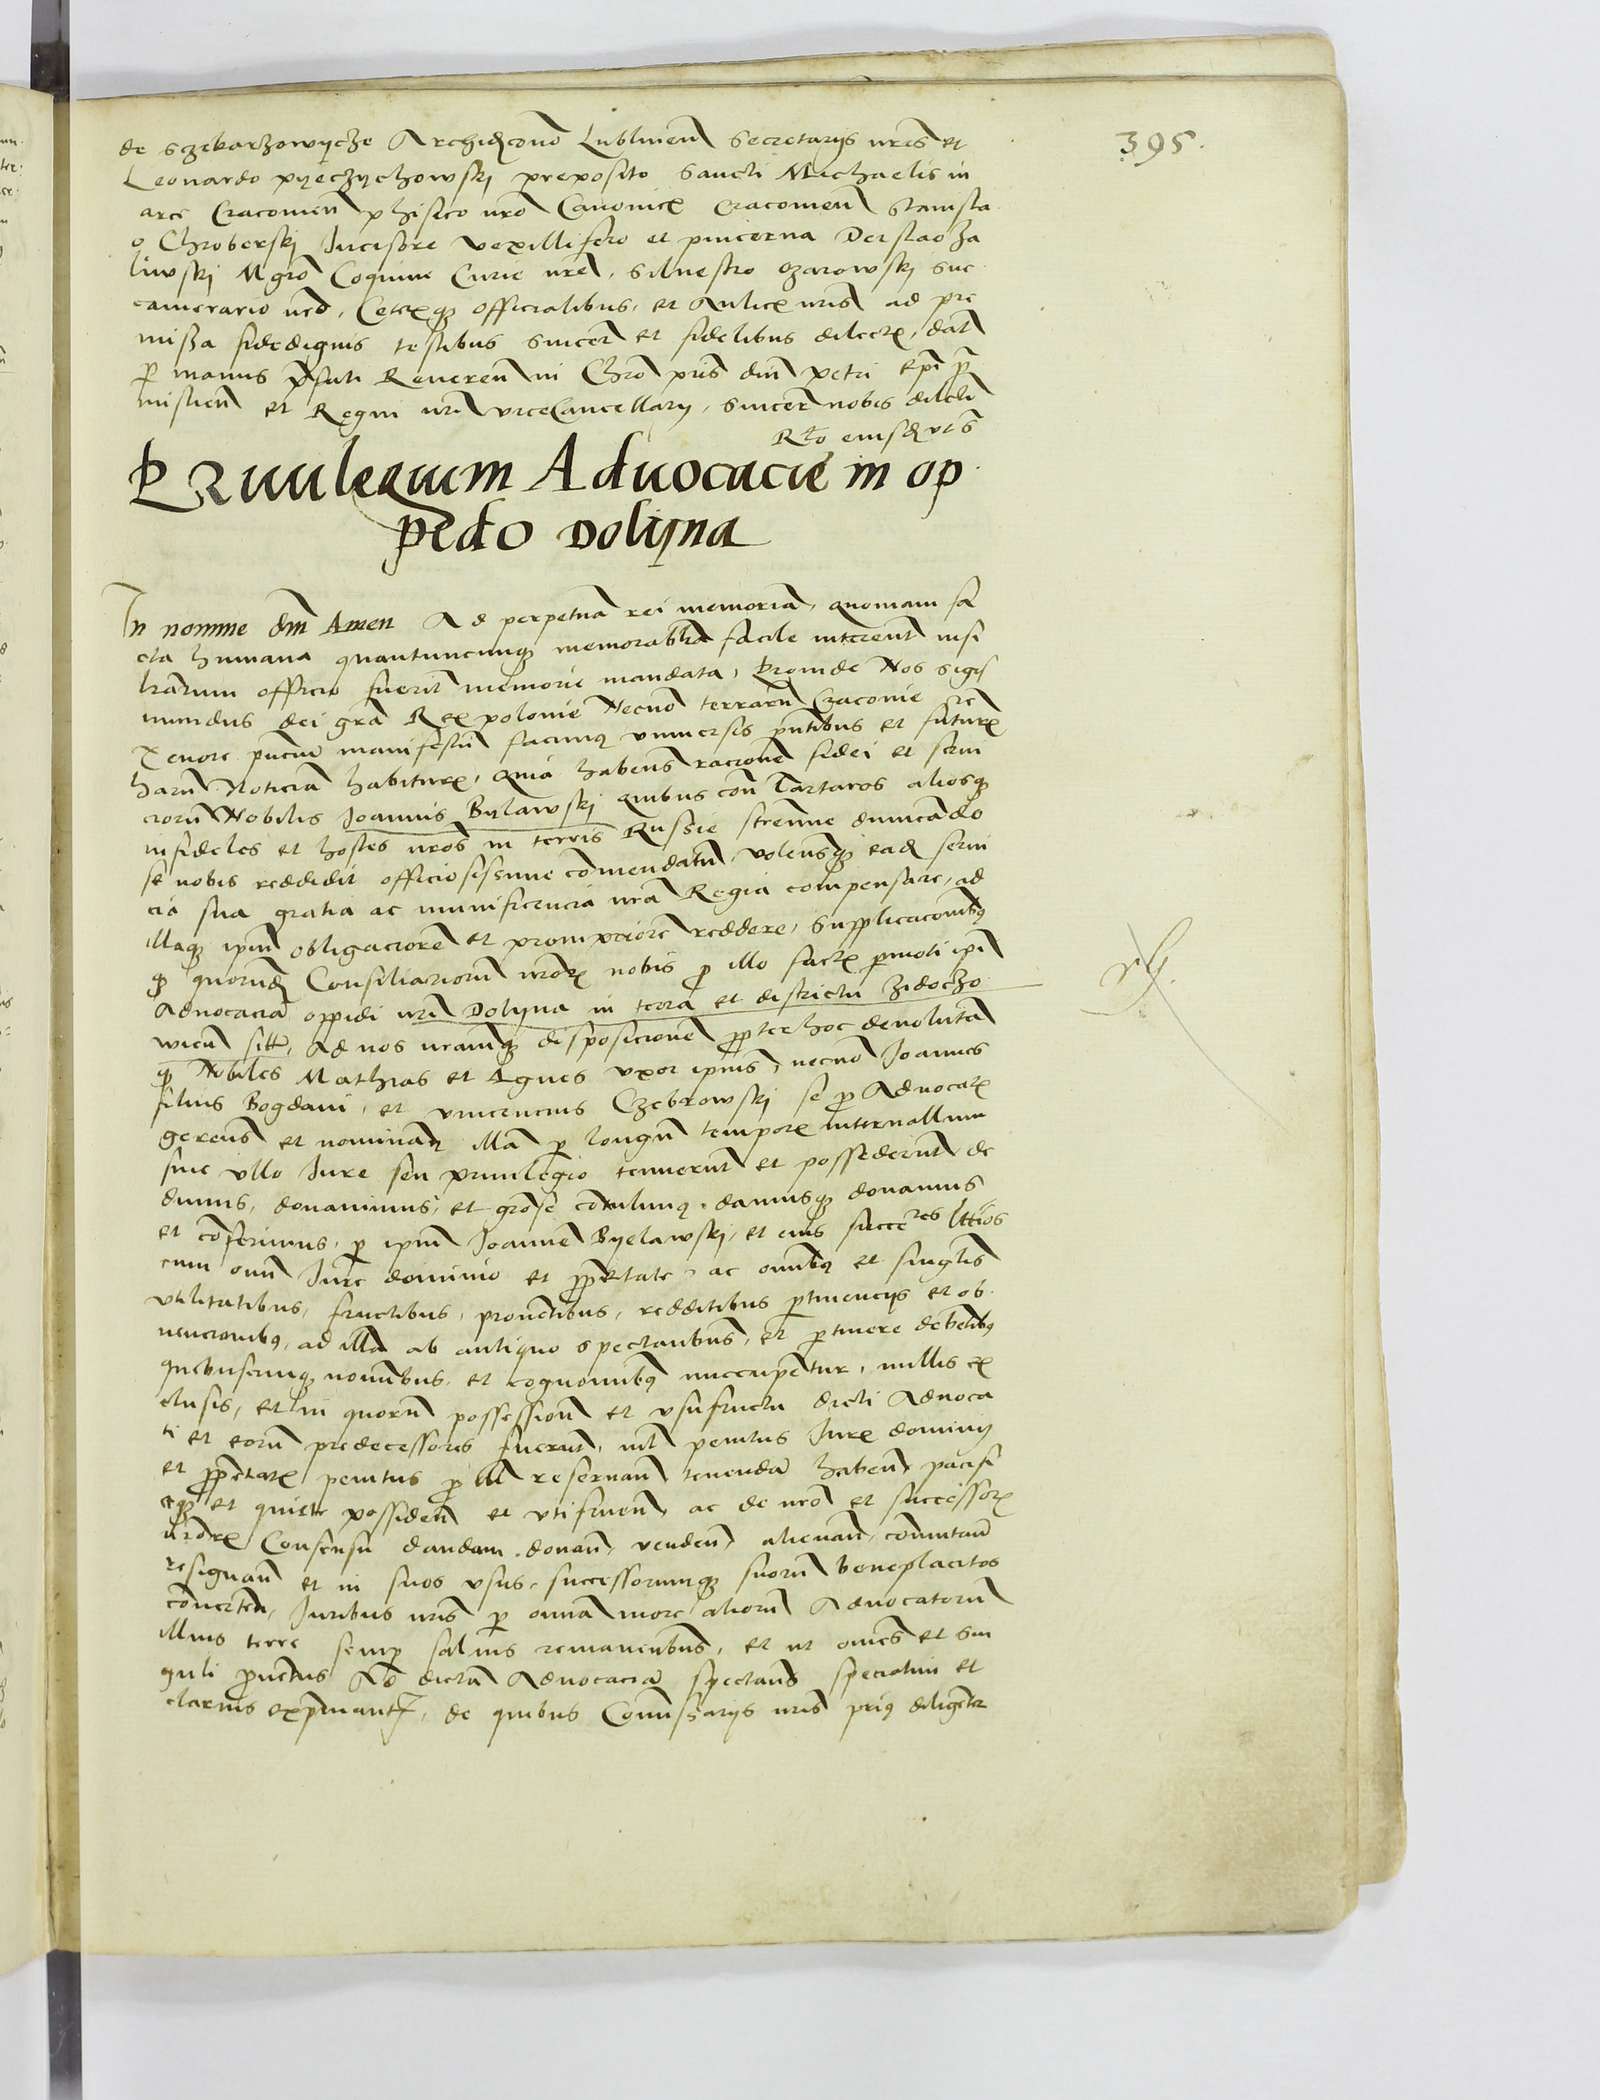 395.
de Szebarzowycze Archidcono Lublinen Secretarijs nris et
Leonardo pyeczychowskj preposito Sancti Michaelis in
arce Cracouien phisico nro Canonicis Cracouien Stanisla
o Chroberskj Incisore vexillifero et pincerna Derslao Za
liwskj Mgro Coquine Curie nre, Siluestro Ozarowskj suc
camerario nro, Ceterisque officialibus, et Aulicis nris ad pre
missa fidedignis testibus sincer et fidelibus dilectis, dat
per manus prefati Reueren in Chro pris dni Petri Epi pre
mislien et Regni nri viceCancellarij, sincer nobis dilecti
Rto eiusdem vt s
Priuilegium Aduocacie in op
pido Dolyna
In nomine dni Amen Ad perpetua rei memoria, quoniam fa
cta humana quantuncunque memorabilia facile intereunt nisi
lrarum officio fuerit memorie mandata, Proinde Nos Sigis
mundus dei gra Rex polonie Necno terraru Cracouie etc
Tenore pncium manifestu facimus vniuersis pntibus et futuris
haru Noticia habituris, quia habens racione fidei et serui
cioru Nobilis Joannis Bylawskj quibus con Tartaros aliosque
infideles et hostes nros in terris Russie strenue dimicado
se nobis reddidit officiosissime comendatu, volensque eadem serui
cia sua gratia ac munificencia nra Regia compensare, ad
illaque ipm obligaciore et prompciore reddere, supplicacionibus
que quorundem Consiliarioru nroris nobis pro illo factis permoti ipi
Aduocacia oppidi nri Dolyna in terra et districtu Zidoczo
wien sitt, Ad nos nramque disposicione propter hoc deuoluta
quod Nobiles Mathias et Agnes vxor ipius, necno Joannes
filius Bogdani, et vincencius Czebrowskj se pro Aduocatis
gerens et nominan illa per longu temporis interuallum
sine vllo Jure seu priuilegio tenuerut et possederut de
dimus, donauimus, et grose contulimus, damusque donamus
et conferimus, per ipm Joanne Byelawskj, et eius successores lttios
cum omni Jure dominio et proprietate, ac omnibus et singlis
vtilitatibus, fructibus, prouentibus, redditibus pertinencijs et ob
uencionibus, ad illa ab antiquo spectantibus, et pertinere debentibus
quibuscunque nominibus, et cognominibus nuccupentur, nullis ex
clusis, et in quoru possession et vsufructu dicti Aduoca
ti et eoru predecessores fuerunt, nil penitus Juris dominij
et proprietatis penitus pro reseruan tenenda haben pacifi
ceque et quiete possiden et vtifruen ac de nro et successoris
nroris Consensu dandam donan, venden, alienan, commutan
resignan et in suos vsus, successorumque suoru beneplacitos
conuerten, Juribus nris per omia more alioru Aduocatoru
illius terre semper saluis remanentibus, et ut omes et sin
guli prouentus Ad dicta Aduocacia spectans speciatim et
clarius exprimantur, de quibus Comissarijs nris prius diligenter